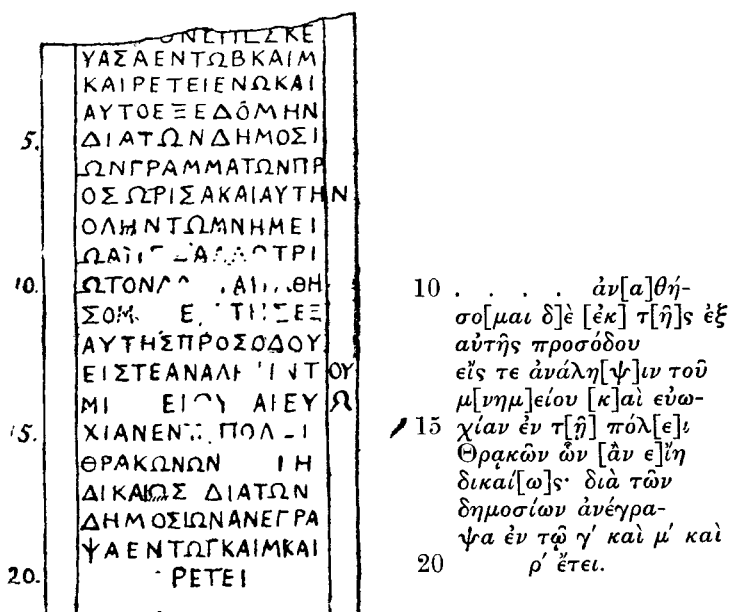 ΟΝΕΠΕΣΚΕ
ΥΑΣΑΕΝΤΩΒΚΑΙΜ
ΚΑΙΡΕΤΕΙΕΝΩΚΑΙ
ΑΥΤΟΕΞΕΔΟΜΗΝ
5. ΔΙΑΤΩΝΔΗΜΟΣΙ
ΩΝΓΡΑΜΜΑΤΩΝΠΡ
ΟΣΩΡΙΣΑΚΑΙΑΥΤΗΝ
ΟΛΗΝΤΩΜΝΗΜΕΙ
10. ΩΤΟΝ ΘΗ
ΣΟΜ Ε
ΑΥΤΗΣΠΡΟΣΟΔΟΥ
ΕΙΣΤΕΑΝΑΛΗ ΟΥ
ΜΙ ΕΙΟΥ ΑΙΕΥΩ
15. ΧΙΑΝΕΝ ΠΟΛ Ι
ΘΡΑΚΩΝΩΝ ΙΗ
ΔΙΚΑΙΩΣ ΔΙΑΤΩΝ
ΔΗΜΟΣΙΩΝΑΝΕΓΡΑ
ΨΑΕΝΤΩΓΚΑΙΜΚΑΙ
20. ΡΕΤΕΙ
10 . . . . ἀν[α]θή-
σο[μαι δ]ὲ [ἐκ] τ[ῆ]ς ἐξ
αὐτῆς προσόδου
εἴς τε ἀνάλη[ψ]ιν τοῦ
μ[νημ]είου [κ]αὶ εὐω-
15 χίαν ἐν τ[ῇ] πόλ[ε]ι
Θρᾳκῶν ὧν [ἂν ε]ἴη
δικαί[ω]ς· διὰ τῶν
δημοσίων ἀνέγρα-
ψα ἐν τῷ γʹ καὶ μʹ καὶ
20 ρʹ ἔτει.